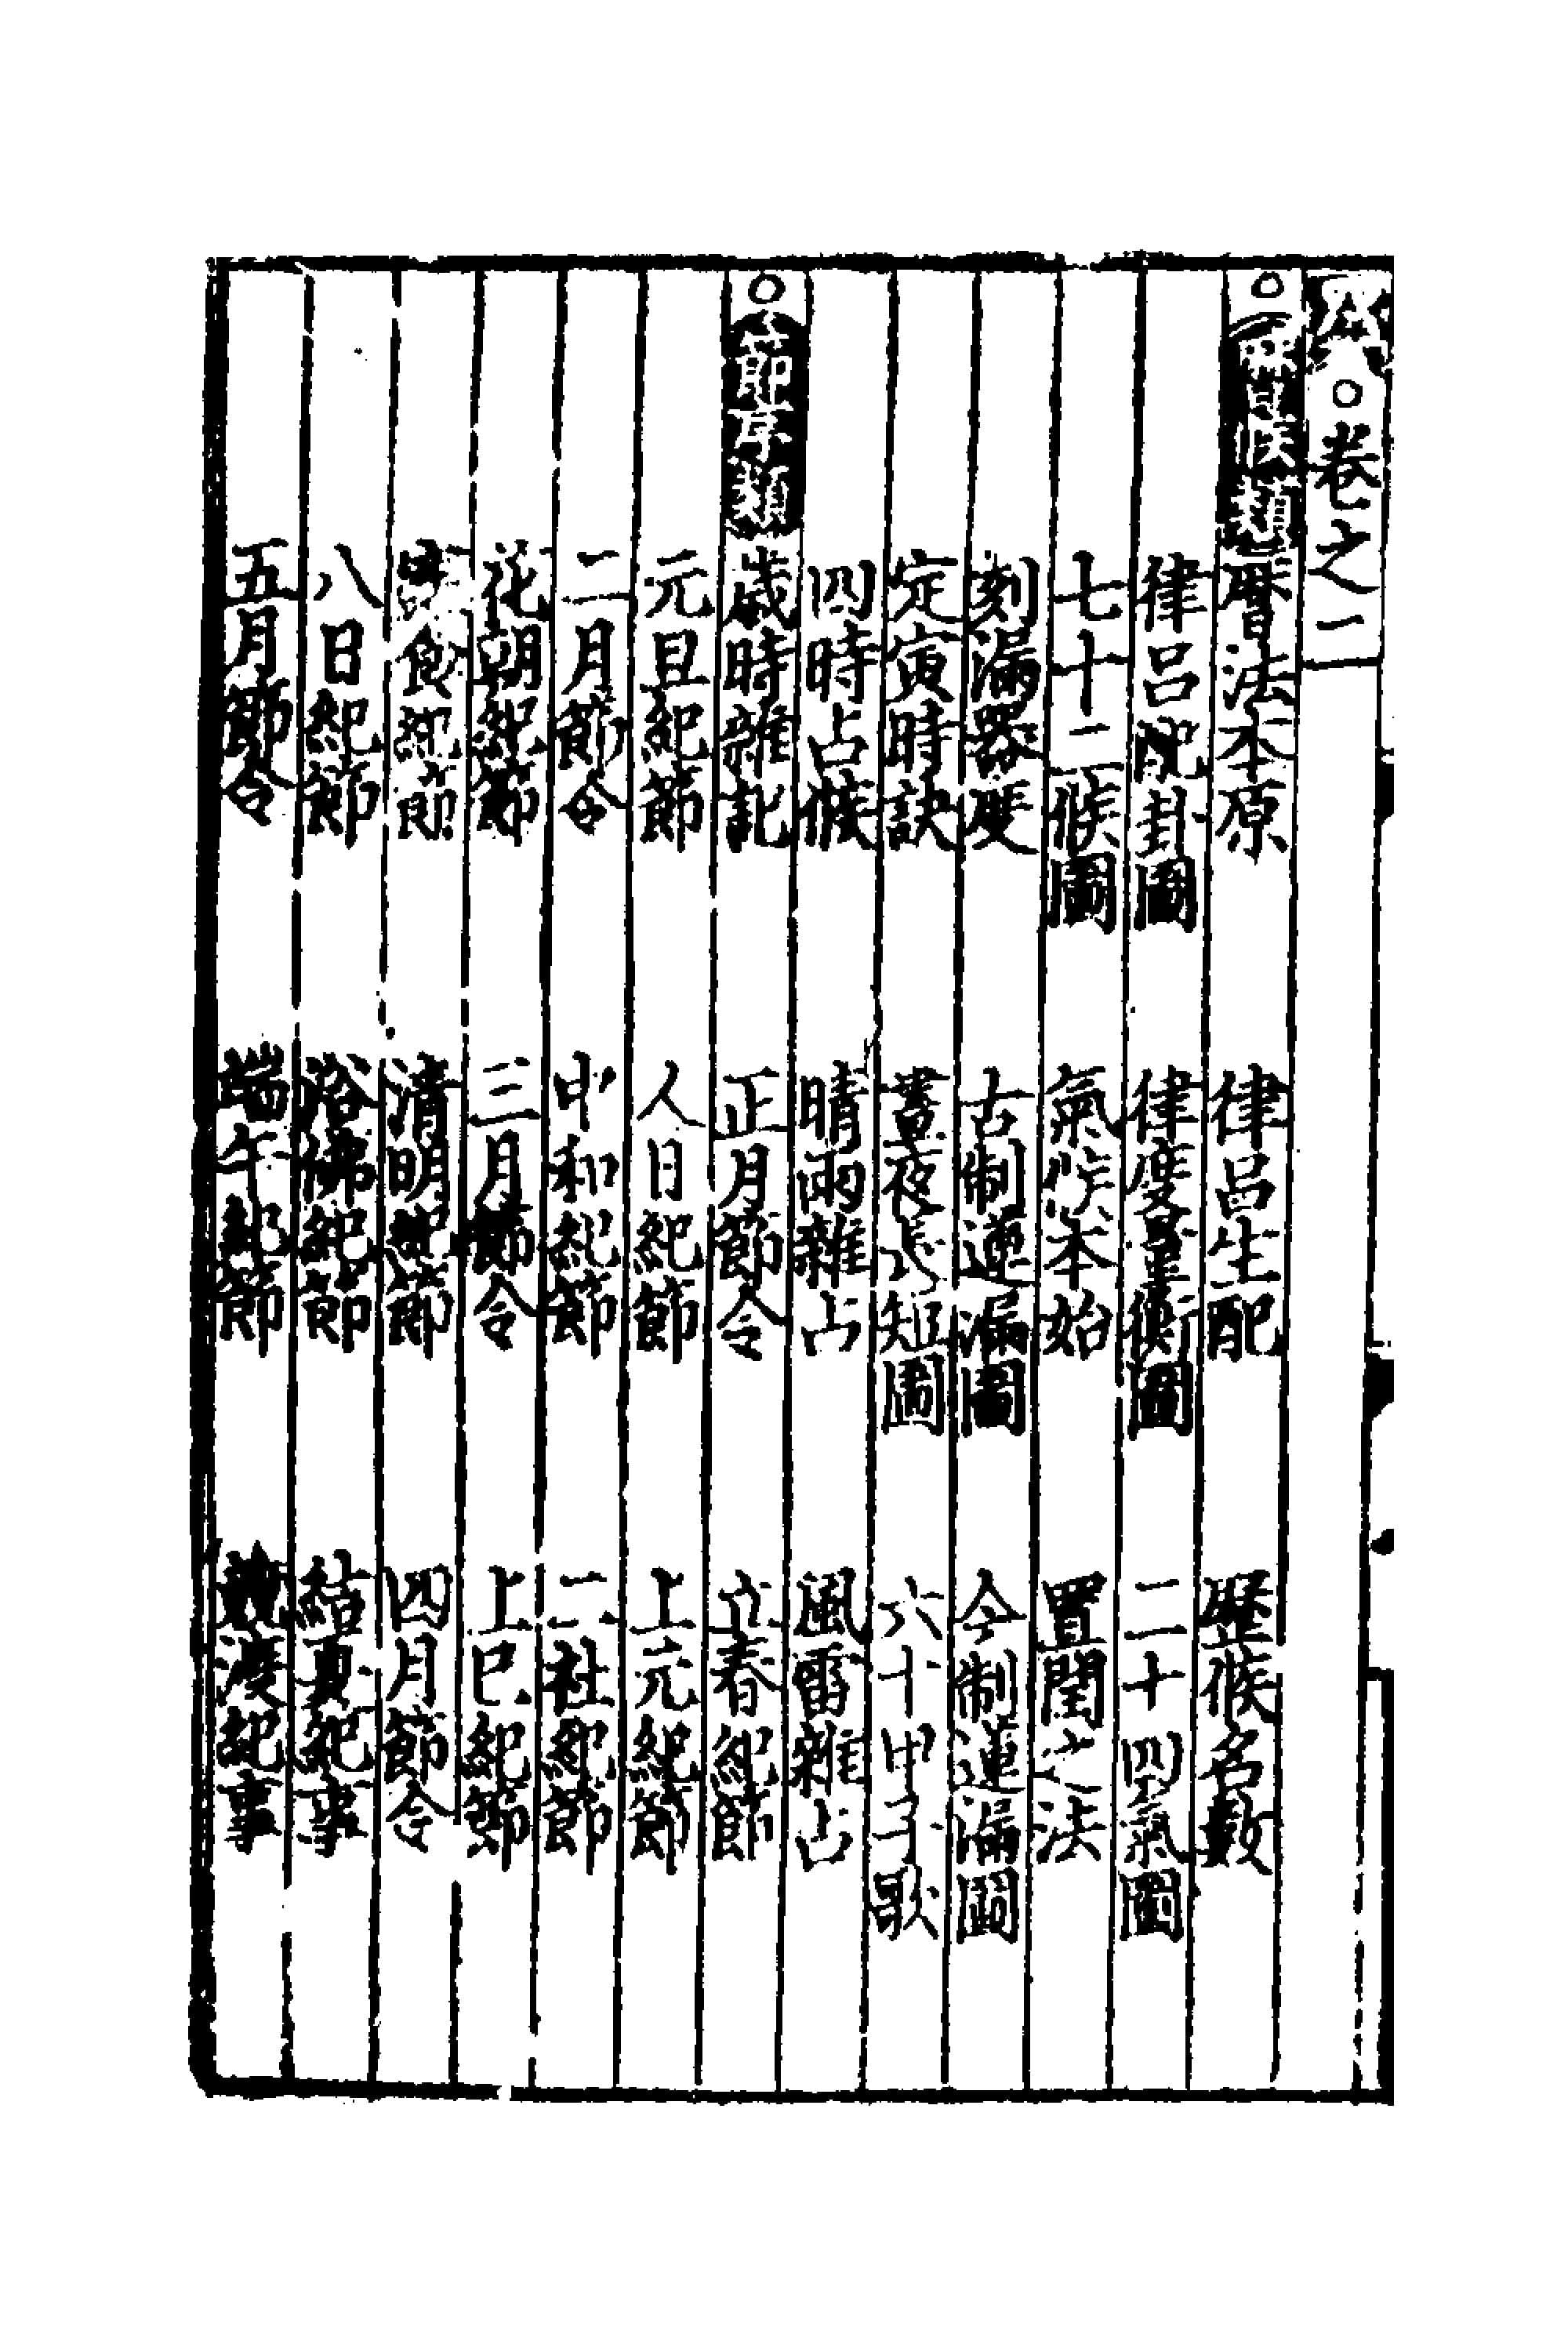 ○卷之二
○曆候類 曆法本原 律呂生配 歷候名數
律呂配卦圖 律度量衡圖 二十四氣圖
七十二候圖 氣候本始 置閏之法
刻漏器度 古制蓮漏圖 今制蓮漏圖
定寅時訣 晝夜長短圖 六十甲子歌
四時占候 晴雨雜占 風雷雜占
○節序類 歲時雜記 正月節令 立春紀節
元旦紀節 人日紀節 上元紀節
二月節令 中和紀節 二社紀節
花朝紀節 三月節令 上巳紀節
食紀節 清明紀節 四月節令
八日紀節 浴佛紀節 結夏紀事
五月節令 端午紀節 競渡紀事